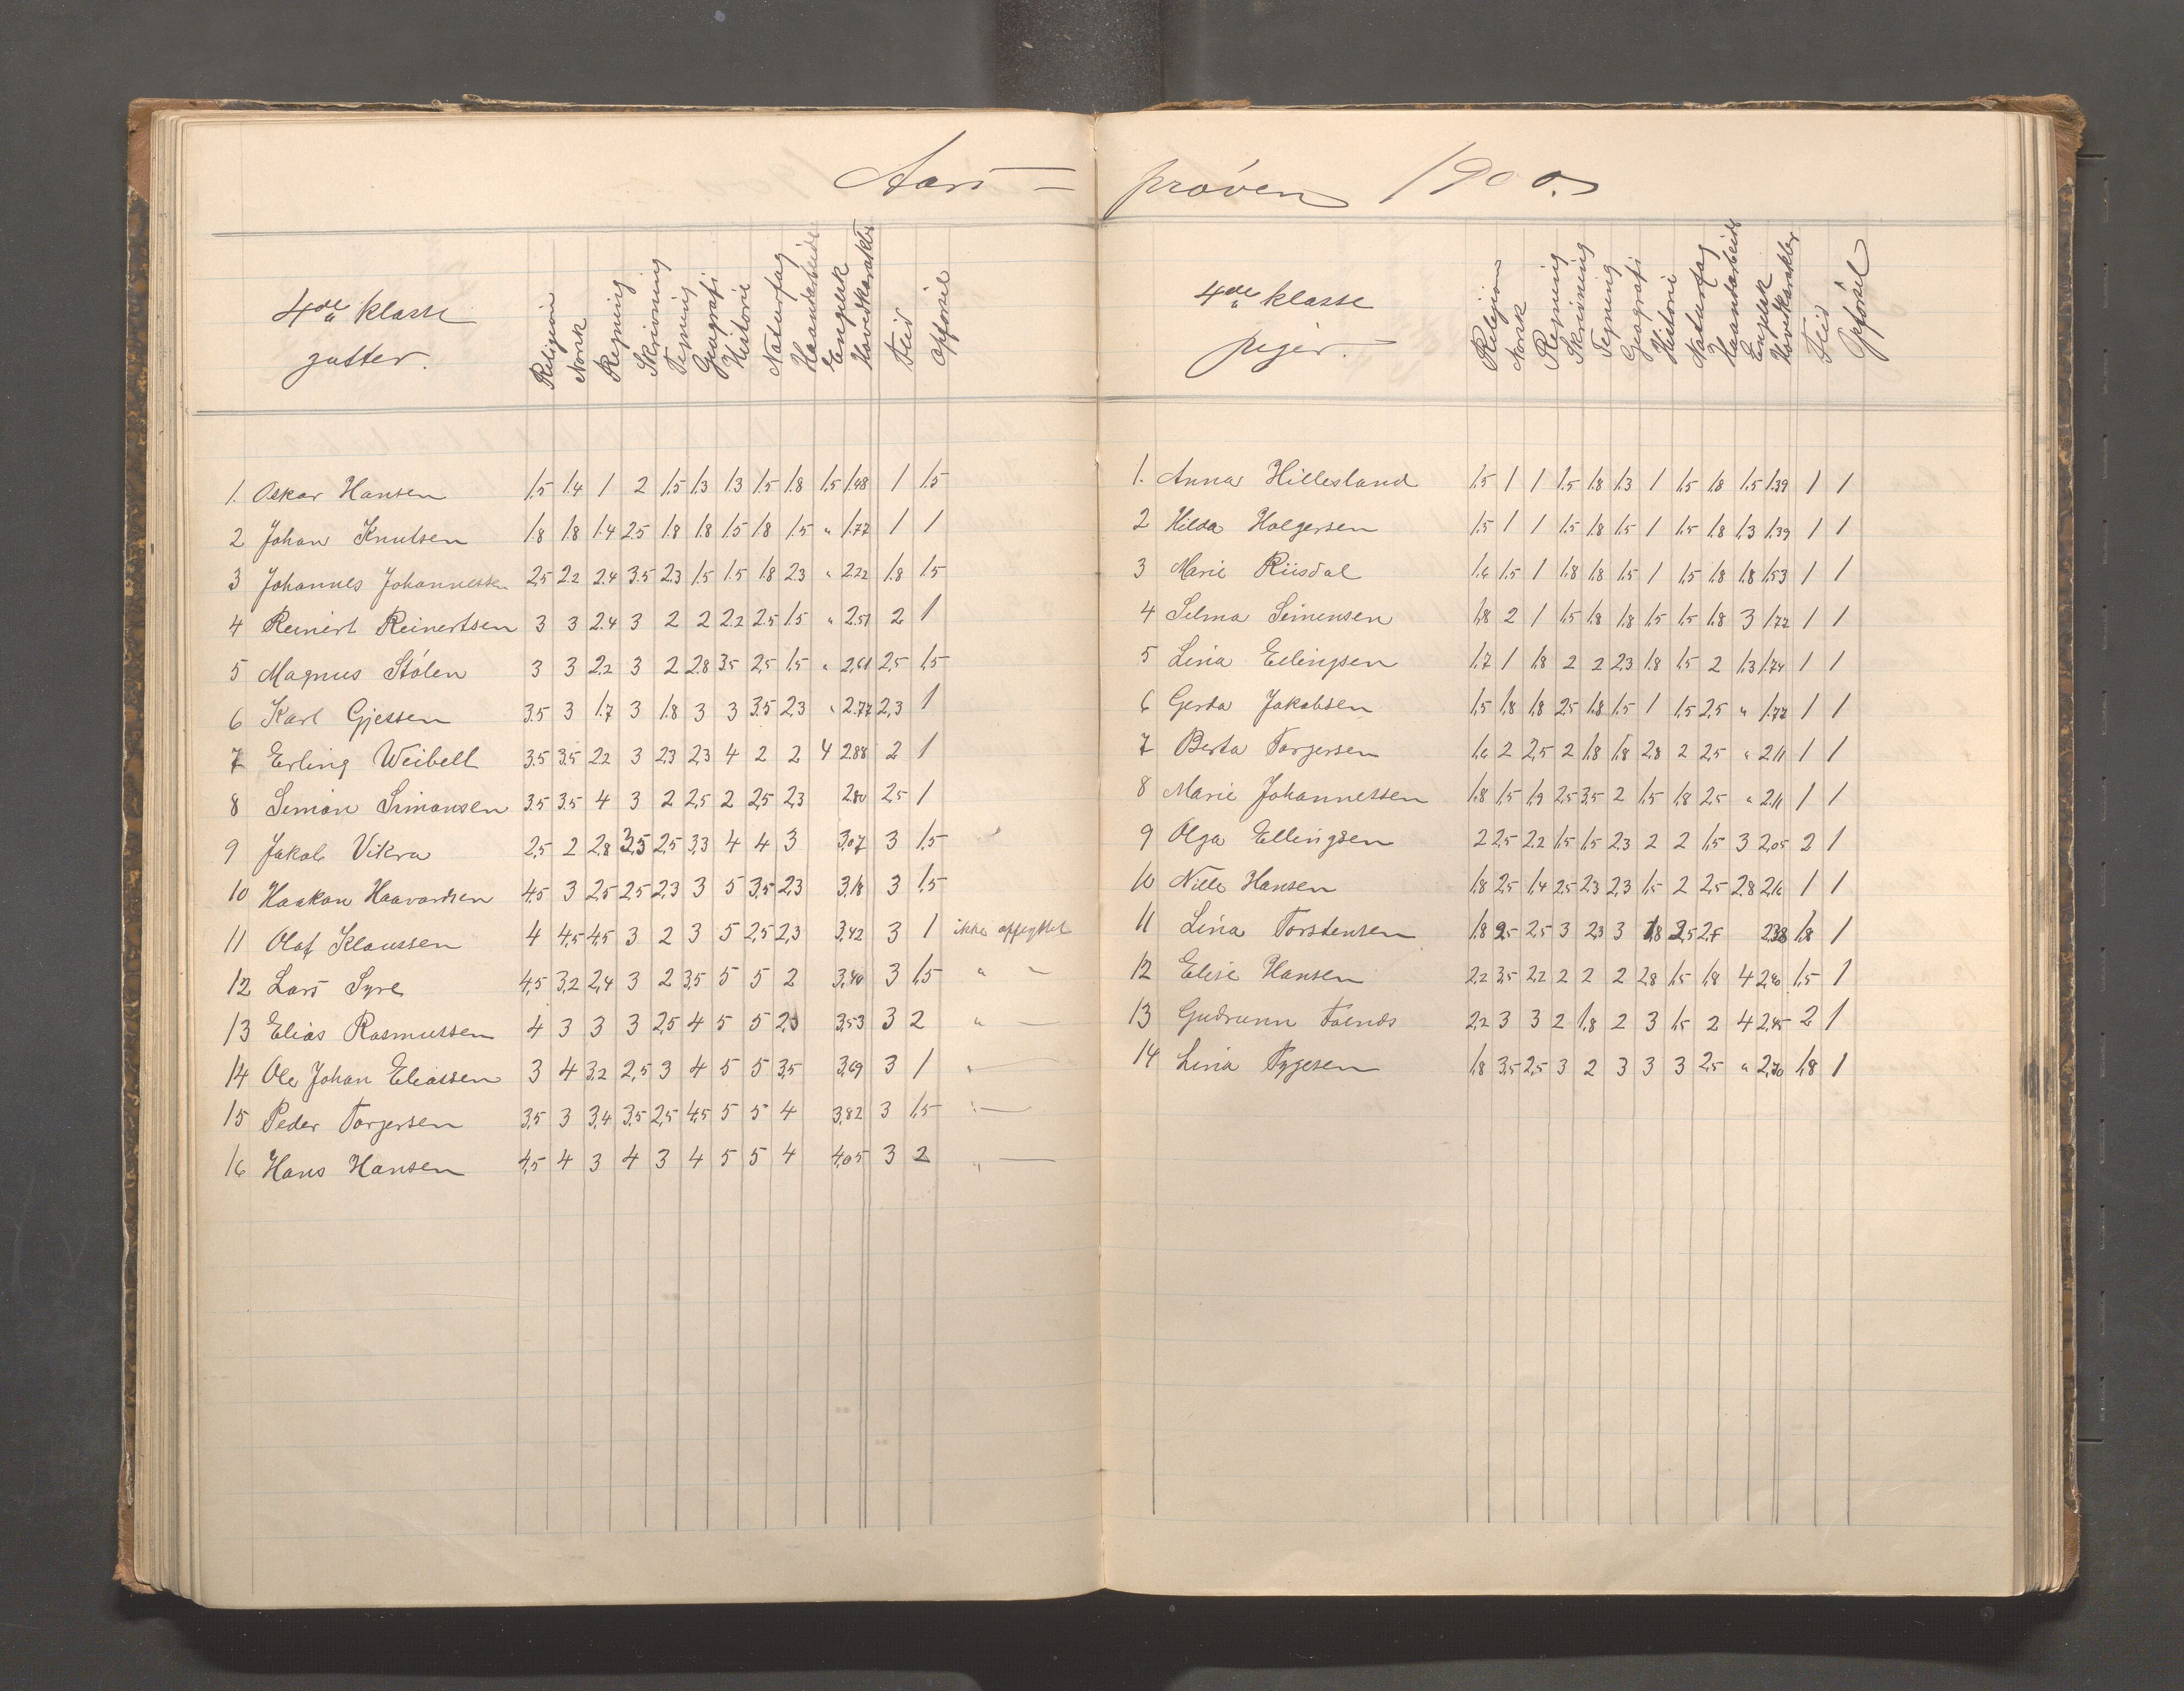 Aars-
4de klasse
gutter.
Religion Norsk Regning Skrivning Tegning Geografi Historie Naturfag Haandarbeide Engelsk Hovedkarakter Flid Opførsel
1. Oskar Hansen 1.5 1.4 1 2 1.5 1.3 1.3 1.5 1.8 1.5 1.48 1 1.5
2 Johan Knutsen 1.8 1.8 1.4 2.5 1.8 1.8 1.5 1.8 1.5 " 1.77 1 1
3 Johannes Johannessen 2,5 2.2 2.4 3.5 2.3 1.5 1.5 1.8 2.3 " 2.22 1.8 1.5
4 Reinert Reinertsen 3 3 2.4 3 2 2 2.2 2.5 1.5 " 2.51 2 1
5 Magnus Stølen 3 3 2,2 3 2 2.8 3.5 2,5 1.5 " 2,61 2,5 1,5
6 Karl Gjessen 3.5 3 1.7 3 1.8 3 3 3.5 2,3 " 2.77 2,3 1
7 Erling Weibell 3.5 3.5 2.2 3 2,3 2,3 4 2 2 4 2.88 2 1
8 Simon Simonsen 3.5 3.5 4 3 2 2,5 2 2,5 2,3 2.80 2,5 1
9 Jakob Vikra 2,5 2 2,8 3,5 2,5 3,3 4 4 3 3,07 3 1,5
10 Haakon Haavardsen 4,5 3 2,5 2,5 2,3 3 5 3,5 2,3 3,18 3 1,5
11 Olaf Klaussen 4 4,5 4,5 3 2 3 5 2,5 2,3 3,42 3 1 ikke opflyttet
12 Lars Syre 4,5 3,2 2,4 3 2 3,5 5 5 2 3,40 3 1,5 " "
13 Elias Rasmussen 4 3 3 3 2,5 4 5 5 2,3 3,53 3 2 " —
14 Ole Johan Eliassen 3 4 3,2 2,5 3 4 5 5 3,5 3,69 3 1 " —
15 Peder Torgersen 3,5 3 3,4 3,5 2,5 4,5 5 5 4 3,82 3 1,5 " —
16 Hans Hansen 4,5 4 3 4 3 4 5 5 4 4,05 3 2 " —
prøven 1900.
4de klasse
piger.
Religion Norsk Regning Skrivning Tegning Geografi Historie Naturfag Haandarbeide Engelsk Hovedkarakter Flid Opførsel
1. Anna Hillesland 1,5 1 1 1.5 1.8 1.3 1 1.5 1.8 1.5 1.39 1 1
2 Hilda Holgersen 1.5 1 1 1.5 1.8 1.5 1 1.5 1.8 1,3 1.39 1 1
3 Marie Riisdal 1.6 1.5 1 1.8 1.8 1.5 1 1.5 1.8 1.8 1.53 1 1
4 Selma Simensen 1,8 2 1 1.5 1.8 1.8 1.5 1.5 1.8 3 1.77 1 1
5 Lina Ellingsen 1.7 1 1.8 2 2 2,3 1.8 1.5 2 1.3 1.74 1 1
6 Gerda Jakobsen 1,5 1.8 1.8 2.5 1.8 1.5 1 1.5 2,5 " 1.77 1 1
7 Berta Torgersen 1,6 2 2,5 2 1,8 1,8 2,8 2 2,5 " 2,11 1 1
8 Marie Johannessen 1.8 1,5 1,9 2,5 3,5 2 1,5 1,8 2,5 " 2,11 1 1
9 Olga Ellingsen 2 2,5 2,2 1,5 1,5 2,3 2 2 1,5 3 2,05 2 1
10 Nille Hansen 1,8 2,5 1,4 2,5 2,3 2,3 1,5 2 2,5 2,8 2,16 1 1
11 Lina Torstensen 1.8 2,5 2,5 3 2,3 3 1,8 2,5 2,5 2,38 1,8 1
12 Elise Hansen 2,2 3,5 2,2 2 2 2 2,8 1,5 1,8 4 2,40 1,5 1
13 Gudrunn 2,2 3 3 2 1,8 2 3 1,5 2 4 2,45 2 1
14 Lina Tygesen 1,8 3,5 2,5 3 2 3 3 3 2,5 " 2,70 1,8 1